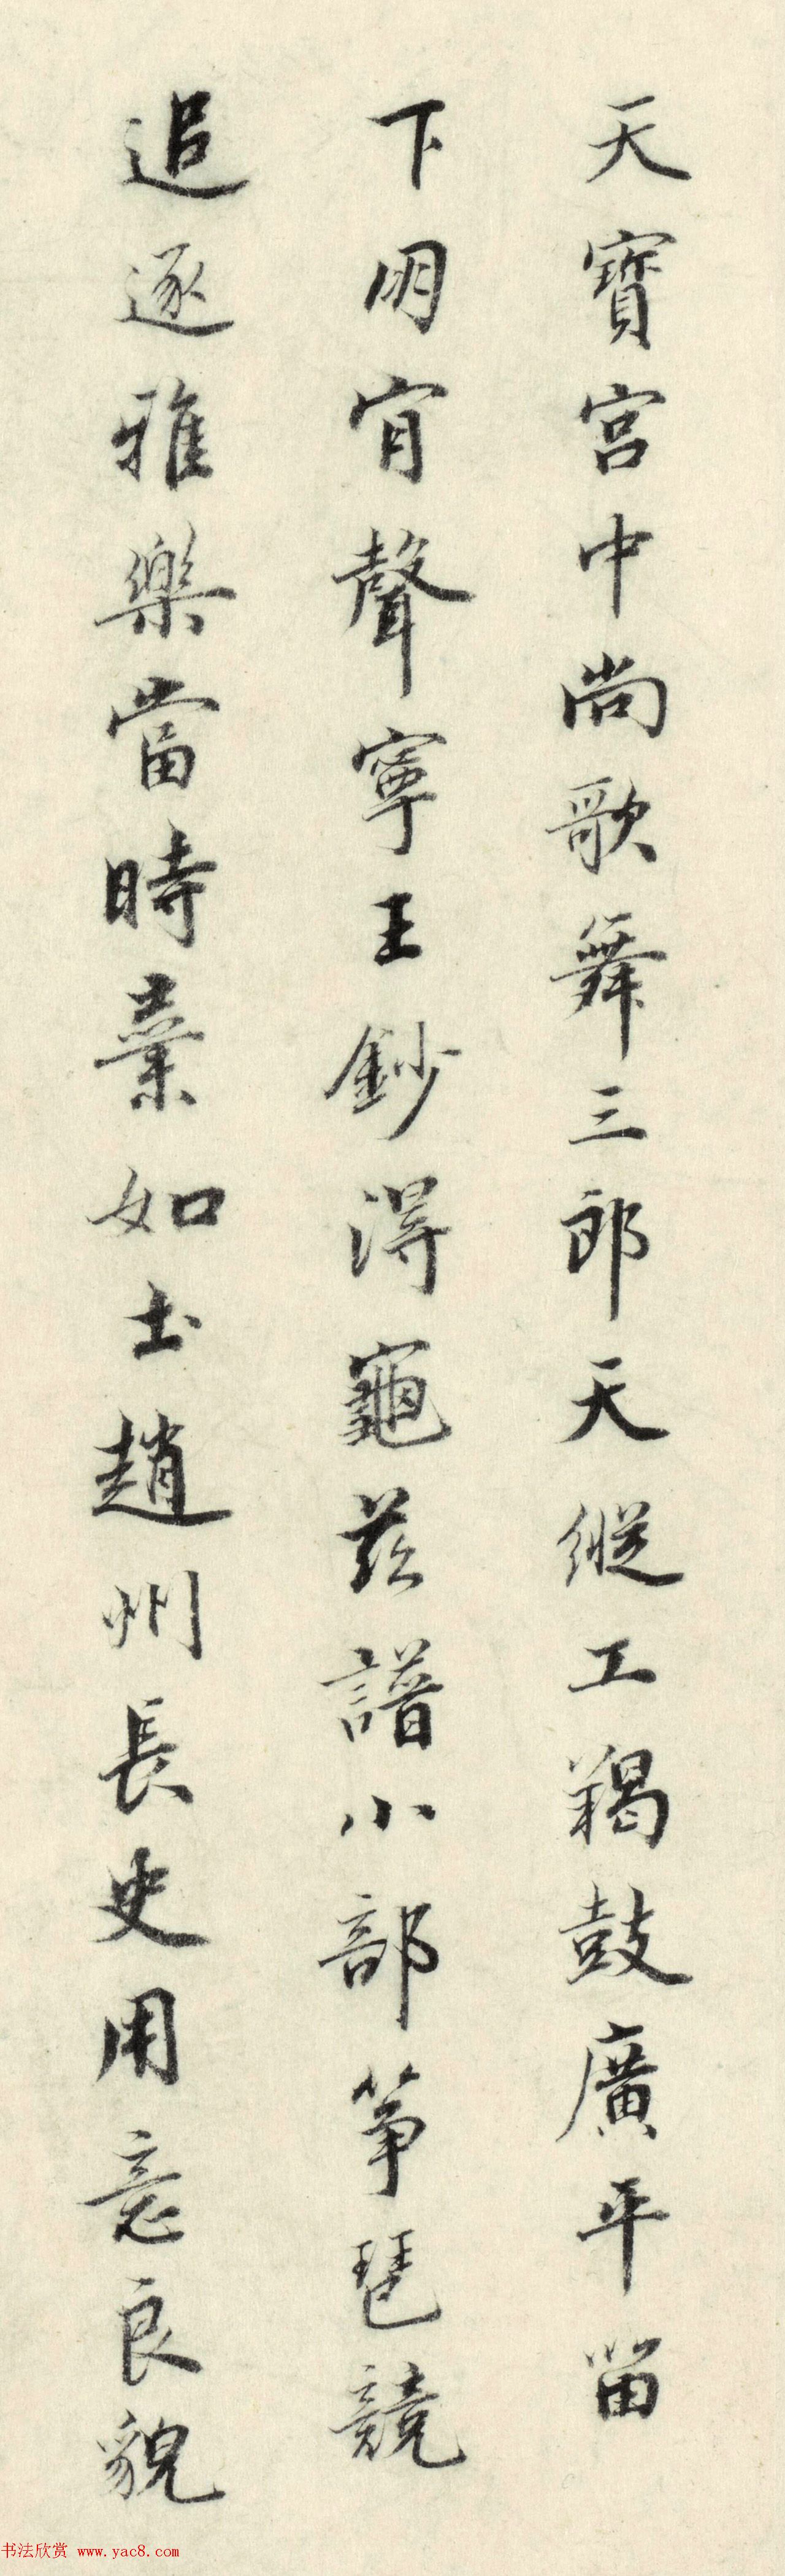 天寶宮中尚歌舞三郎天縱工羯鼓廣平留
下明肎聲寧王鈔得龜茲譜小部箏琶競
追逐雅樂當時棄如土趙州長史用意良貌
书法欣赏 www.yac8.com